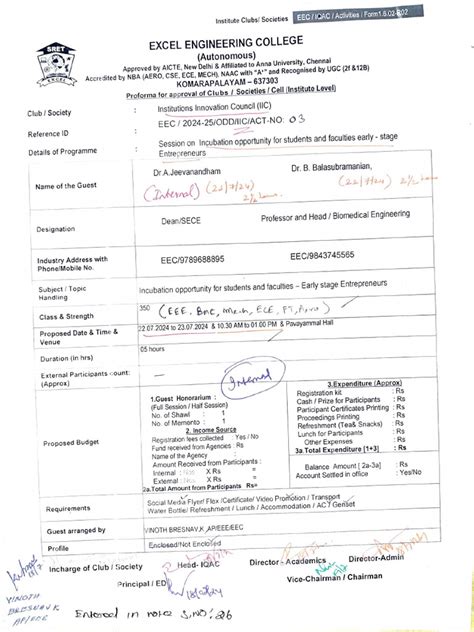 Institute Clubs/ Societies EEC / IQAC / Activities / Form1.6.02-R.02
SRET
EXCEL
EXCEL ENGINEERING COLLEGE
(Autonomous)
Approved by AICTE, New Delhi & Affiliated to Anna University, Chennai
Accredited by NBA (AERO, CSE, ECE, MECH), NAAC with "A+" and Recognised by UGC (2f &12B)
KOMARAPALAYAM – 637303
Proforma for approval of Clubs / Societies / Cell (Institute Level)
Club / Society : Institutions Innovation Council (IIC)
Reference ID : EEC / 2024-25/ODD/IIC/ACT-NO: 03
Details of Programme : Session on Incubation opportunity for students and faculties early - stage
Entrepreneurs
Name of the Guest
Dr.A.Jeevanandham Dr. B. Balasubramanian,
(Internal) (22/7/24) (22/7/24)
Designation Dean/SECE Professor and Head / Biomedical Engineering
Industry Address with
Phone/Mobile No.
EEC/9789688895 EEC/9843745565
Subject / Topic
Handling
Incubation opportunity for students and faculties – Early stage Entrepreneurs
Class & Strength 350 (EEE, BME, Mech, ECE, FT,
Proposed Date & Time &
Venue
22.07.2024 to 23.07.2024 & 10.30 AM to 01.00 PM & Pavayammal Hall
Duration (in hrs) 05 hours
External Participants count:
(Approx)
Internal
Proposed Budget
1.Guest Honorarium :
(Full Session / Half Session)
No. of Shawl : 1
No. of Memento : 1
2. Income Source
Registration fees collected : Yes / No
Fund received from Agencies : Rs
Name of the Agency :
Amount Received from Participants :
Internal : Nos X = Rs
External : Nos X = Rs
2a.Total Amount from Participants : Rs
3.Expenditure (Approx)
Registration kit : Rs
Cash / Prize for Participants : Rs
Participant Certificates Printing : Rs
Proceedings Printing : Rs
Refreshment (Tea& Snacks) : Rs
Lunch for Participants : Rs
Other Expenses : Rs
3a.Total Expenditure [1+3] : Rs
Balance Amount [2a-3a] : Rs
Account Settled in office : Yes/No
Requirements
Social Media Flyer/ Flex /Certificate/ Video Promotion / Transport
Water Bottle/ Refreshment / Lunch / Accommodation / ACT Genset
Guest arranged by VINOTH BRESNAV.K,AP/EEE/EEC
Profile Enclosed/Not Enclosed
Incharge of Club / Society Head- IQAC Director - Academics Director-Admin
Principal / ED Vice-Chairman / Chairman
VINOTH
BRESNAV.K
AP/EEE
Entered in note S.NO: 26